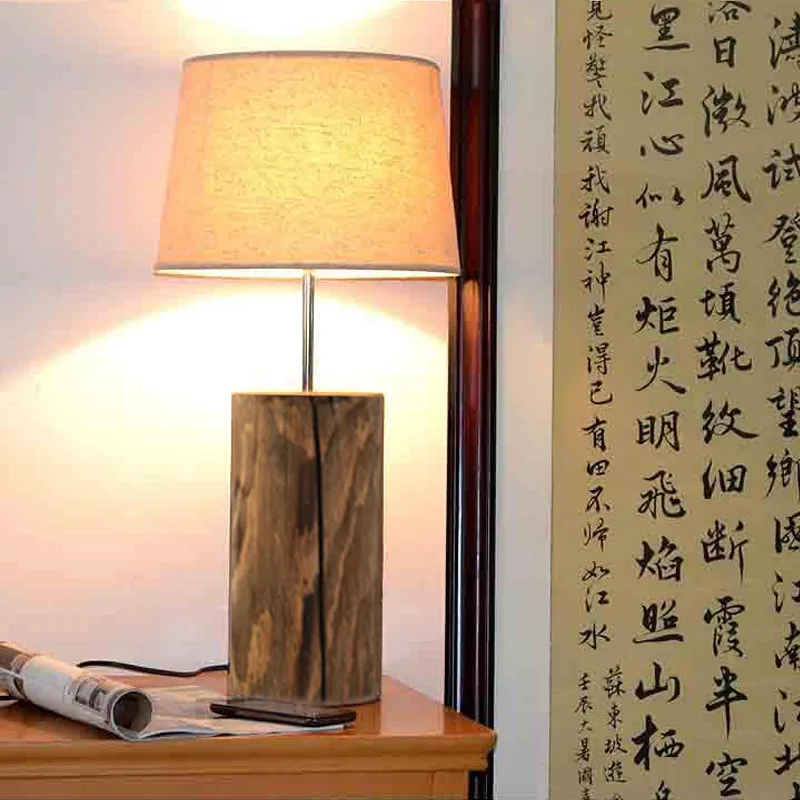 濤波試登絕頂望鄉國江南江北
落日微風萬頃靴紋細斷霞半空
黑江心似有炬火明飛焰照山棲
見怪驚我頑我謝江神豈得已有田不歸如江水
蘇東坡遊
壬辰大暑國